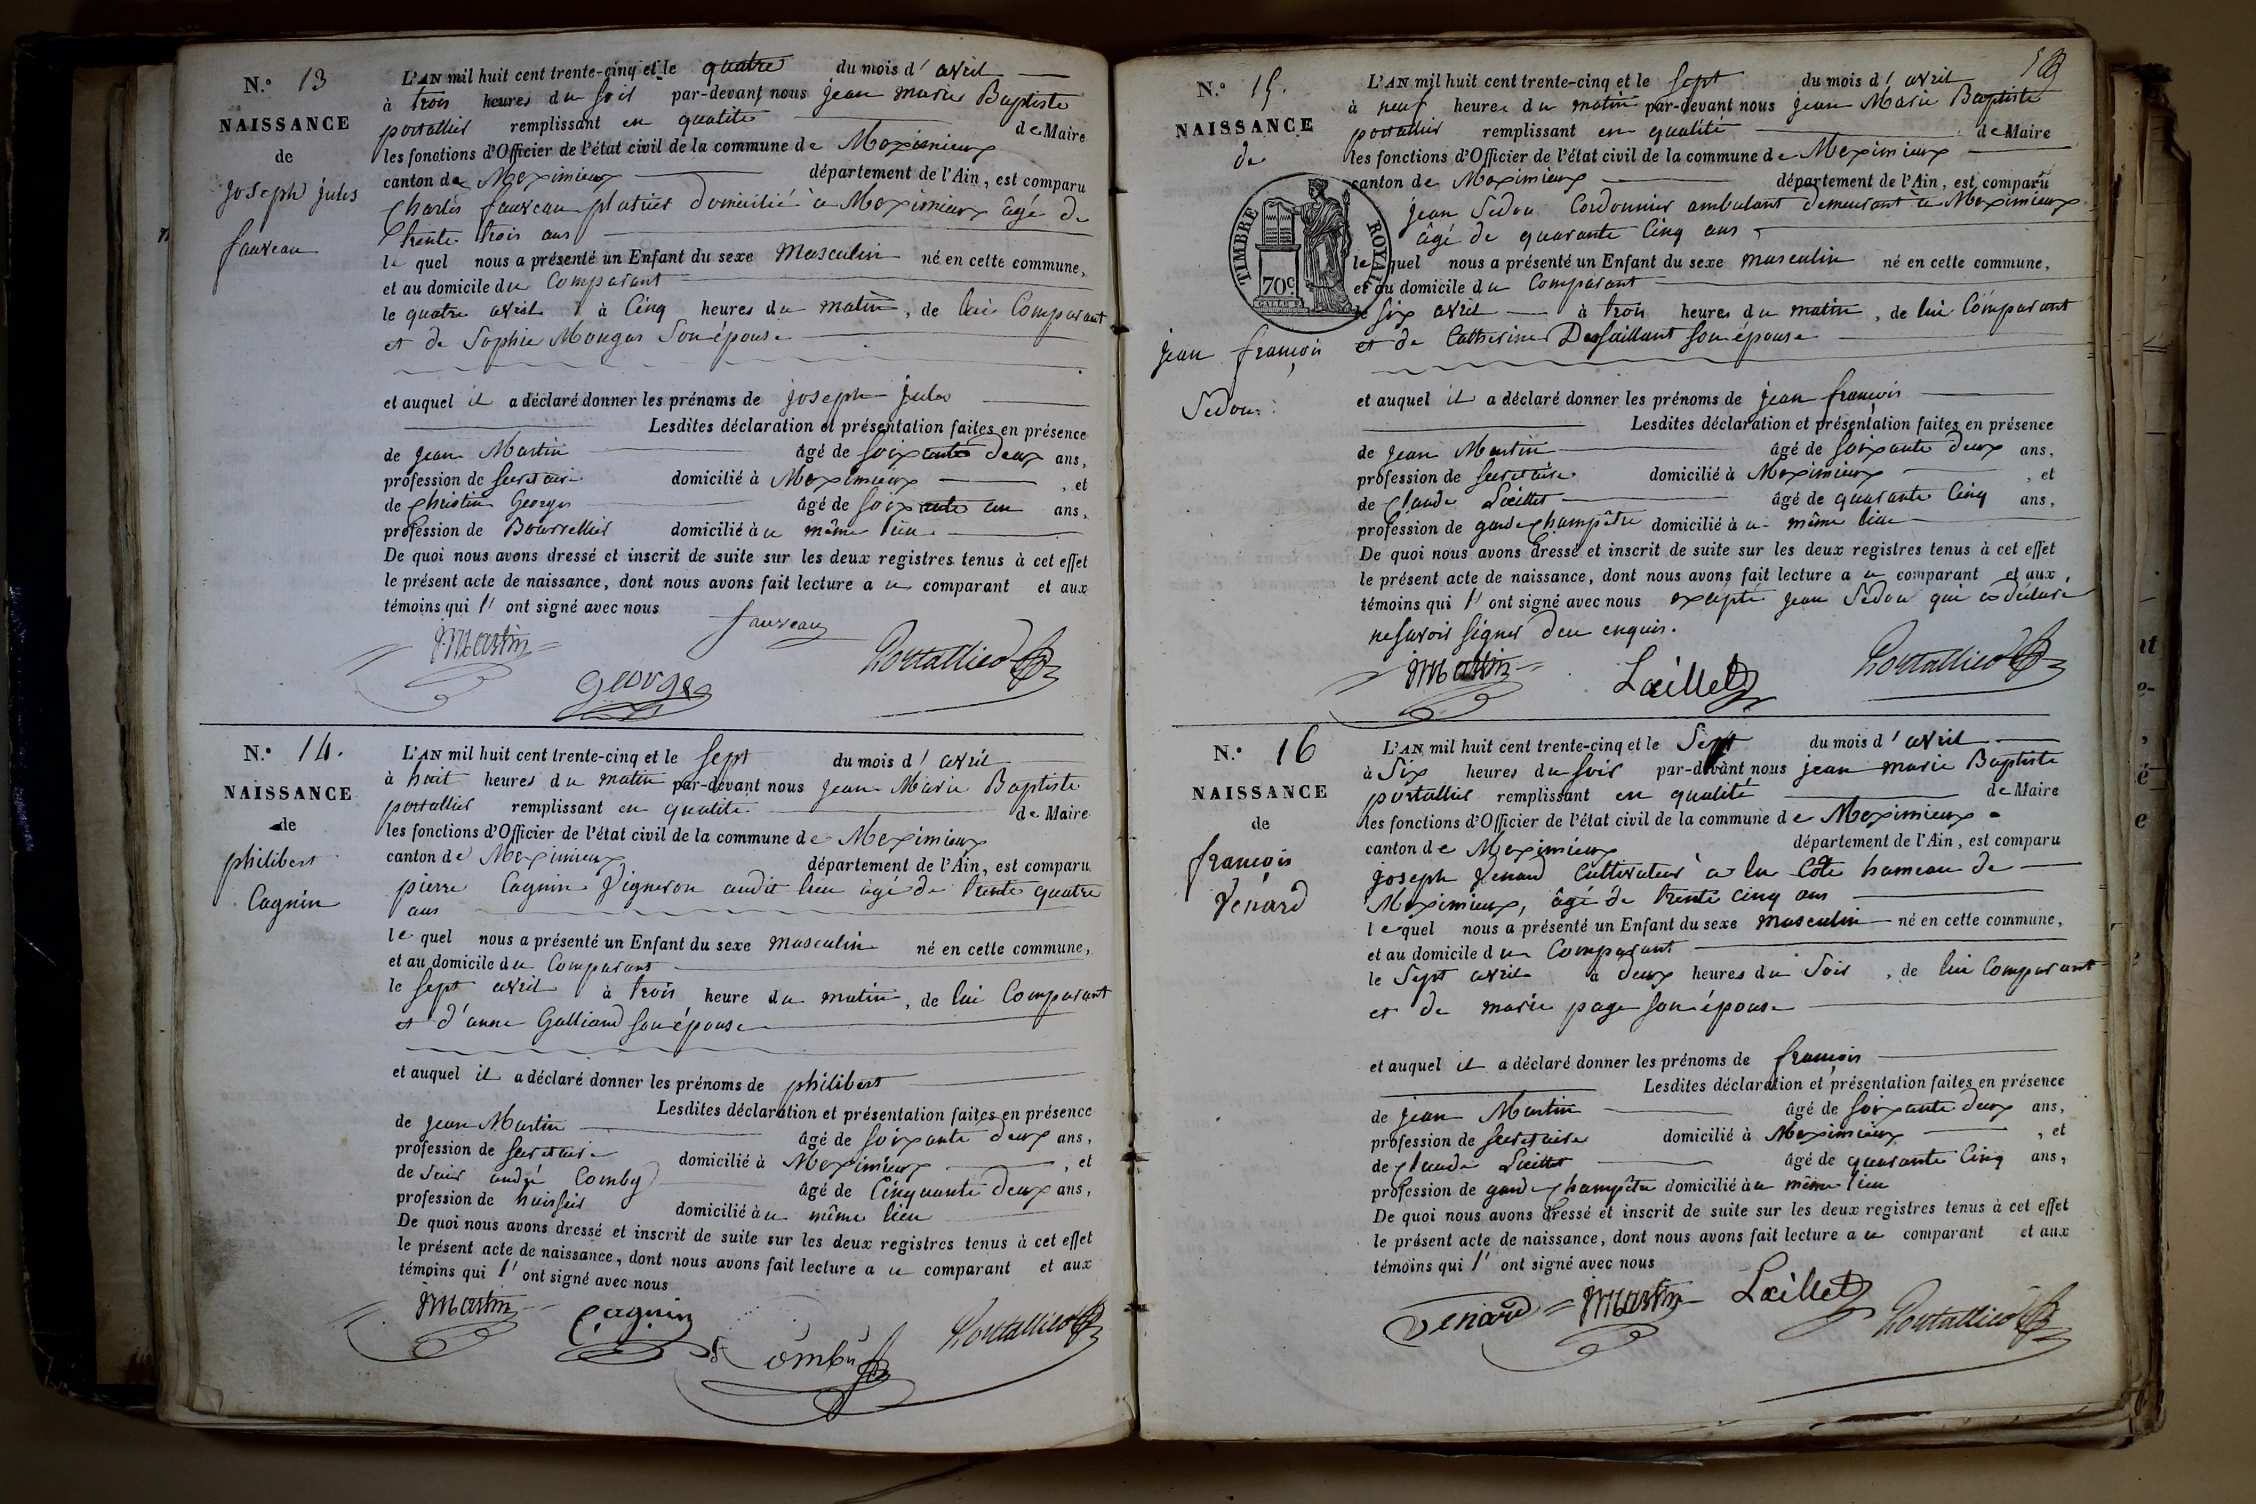 N.° 13
NAISSANCE
de
joseph jules
fauveau
L'AN mil huit cent trente-cinq et le quatre du mois d'avril
à trois heures du soir par-devant nous jean marie Baptiste
portallier remplissant en qualité de Maire
les fonctions d'Officier de l'état civil de la commune de Meximieux
canton de Meximieux département de l'Ain, est comparu
Charles fauveau platrier domicilié à Meximieux âgé de
trente trois ans
le quel nous a présenté un Enfant du sexe Masculin né en cette commune,
et au domicile du Comparant
le quatre avril à Cinq heures du matin, de lui Comparant
et de Sophie Mougas Son épouse
et auquel il a déclaré donner les prénoms de joseph jules
Lesdites déclaration et présentation faites en présence
de jean Martin âgé de soixante deux ans,
profession de secretaire domicilié à Meximieux, et
de Christin Georges âgé de soixante un ans,
profession de Bourrellier domicilié à u même lieu
De quoi nous avons dressé et inscrit de suite sur les deux registres tenus à cet effet
le présent acte de naissance, dont nous avons fait lecture a u comparant et aux
témoins qui l' ont signé avec nous
fauveau
jMartin
George
Portallier
N.° 14.
NAISSANCE
de
philibert
Cagnin
L'AN mil huit cent trente-cinq et le sept du mois d'avril
à huit heures du matin par-devant nous jean Marie Baptiste
portallier remplissant en qualité de Maire
les fonctions d'Officier de l'état civil de la commune de Meximieux
canton de Meximieux département de l'Ain, est comparu
pierre Cagnin Vigneron audit lieu âgé de trente quatre
ans
le quel nous a présenté un Enfant du sexe masculin né en cette commune,
et au domicile du Comparant
le sept avril à trois heure du matin, de lui Comparant
et d'anne Galliand son épouse
et auquel il a déclaré donner les prénoms de philibert
Lesdites déclaration et présentation faites en présence
de jean Martin âgé de soixante deux ans,
profession de secretaire domicilié à Meximieux, et
de andré Comby âgé de Cinquante deux ans,
profession de huissier domicilié à u même lieu
De quoi nous avons dressé et inscrit de suite sur les deux registres tenus à cet effet
le présent acte de naissance, dont nous avons fait lecture a u comparant et aux
témoins qui l' ont signé avec nous
jMartin
Cagnin
Comby
Portallier
N.° 15.
NAISSANCE
de
jean françois
Sedou
TIMBRE ROYAL
70c.
L'AN mil huit cent trente-cinq et le sept du mois d'avril
à neuf heures du matin par-devant nous jean Marie Baptiste
portallier remplissant en qualité de Maire
les fonctions d'Officier de l'état civil de la commune de Meximieux
canton de Meximieux département de l'Ain, est comparu
jean Sedou Cordonnier ambulant demeurant à Meximieux
âgé de quarante Cinq ans
le quel nous a présenté un Enfant du sexe masculin né en cette commune,
et au domicile du Comparant
le six avril à trois heures du matin, de lui Comparant
et de Catherine Dessaillant son épouse
et auquel il a déclaré donner les prénoms de jean françois
Lesdites déclaration et présentation faites en présence
de jean Martin âgé de soixante deux ans,
profession de secretaire domicilié à Meximieux, et
de Claude Lœillet âgé de quarante Cinq ans,
profession de garde Champêtre domicilié à u même lieu
De quoi nous avons dressé et inscrit de suite sur les deux registres tenus à cet effet
le présent acte de naissance, dont nous avons fait lecture a u comparant et aux
témoins qui l' ont signé avec nous excepté jean Sedou qui a déclaré
ne savoir signer deu enquis.
jMartin
Lœillet
Portallier
N.° 16
NAISSANCE
de
françois
Venard
L'AN mil huit cent trente-cinq et le Sept du mois d'avril
à Six heures du soir par-devant nous jean marie Baptiste
portallier remplissant en qualité de Maire
les fonctions d'Officier de l'état civil de la commune de Meximieux
canton de Meximieux département de l'Ain, est comparu
joseph Venard Cultivateur à la Côte hameau de
Meximieux, âgé de trente cinq ans
le quel nous a présenté un Enfant du sexe masculin né en cette commune,
et au domicile du Comparant
le Sept avril à deux heures du Soir, de lui Comparant
et de marie page son épouse
et auquel il a déclaré donner les prénoms de françois
Lesdites déclaration et présentation faites en présence
de jean Martin âgé de soixante deux ans,
profession de secretaire domicilié à Meximieux, et
de Claude Lœillet âgé de quarante Cinq ans,
profession de garde Champêtre domicilié à u même lieu
De quoi nous avons dressé et inscrit de suite sur les deux registres tenus à cet effet
le présent acte de naissance, dont nous avons fait lecture a u comparant et aux
témoins qui l' ont signé avec nous
Venard
jMartin
Lœillet
Portallier